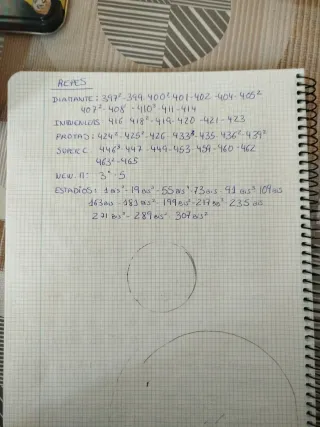 REPES
DIAMANTE: 397²-399-400²-401-402-404-405²
407²-408 -410²-411-414
416-418²-419-420-421-423
PROTAS: 424²-425²-426-433²-435-436²-439²
SUPER C. 446²-447-449-453-459-460-462
463²-465
NEW M: 3²-5
ESTADIOS: 1 BIS²-19 BIS²-55 BIS²-73 BIS-91 BIS²-109 BIS
163 BIS-181 BIS²-199 BIS²-217 BIS²-235 BIS
271 BIS²-289 BIS²-307 BIS²